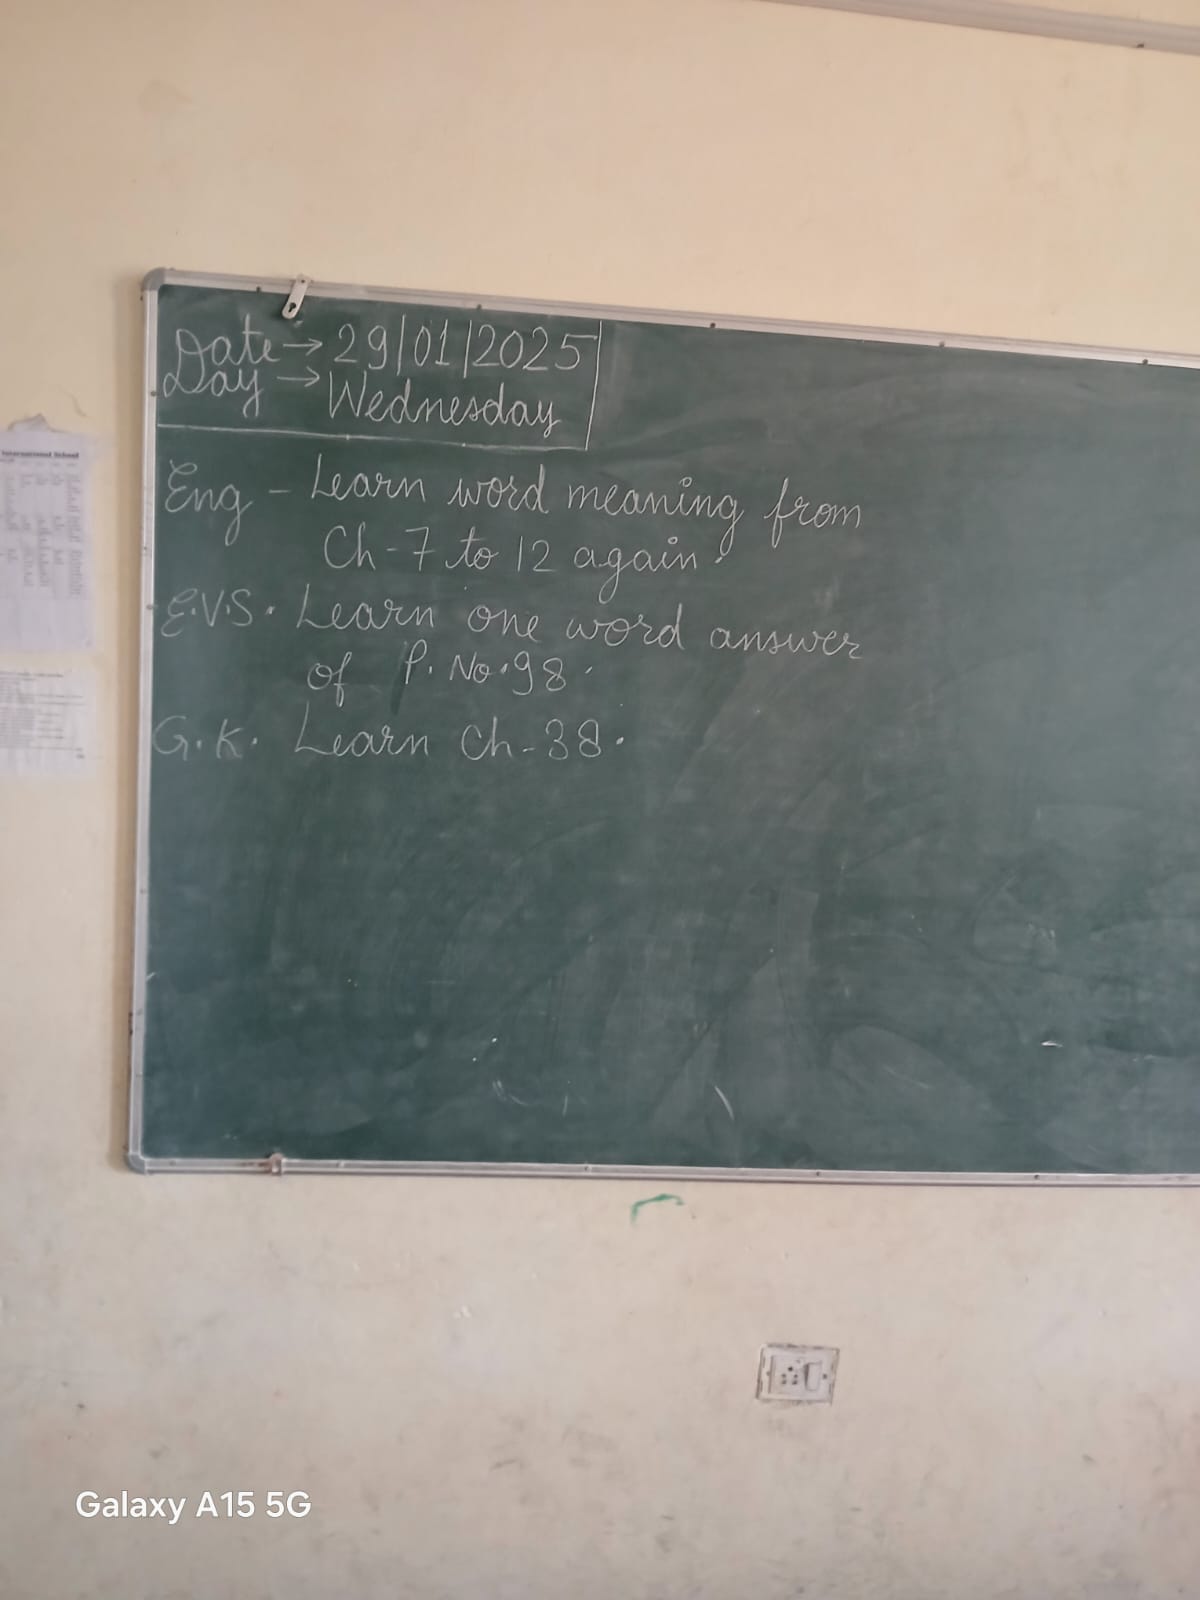 Date → 29/01/2025
Day → Wednesday
Eng - Learn word meaning from
Ch-7 to 12 again.
E.V.S. Learn one word answer
of P. No. 98.
G.K. Learn Ch-38.
International School
Galaxy A15 5G